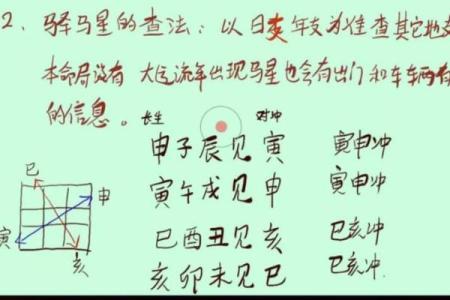 2、驿马星的查法：以日支年支为准查其它地支
本命局没有 大运流年出现马星也会有出门和车辆有
的信息。
长生 对冲
申子辰见寅 寅申冲
寅午戌见申 寅申冲
巳酉丑见亥 巳亥冲
亥卯未见巳 巳亥冲.
巳
申
寅
亥